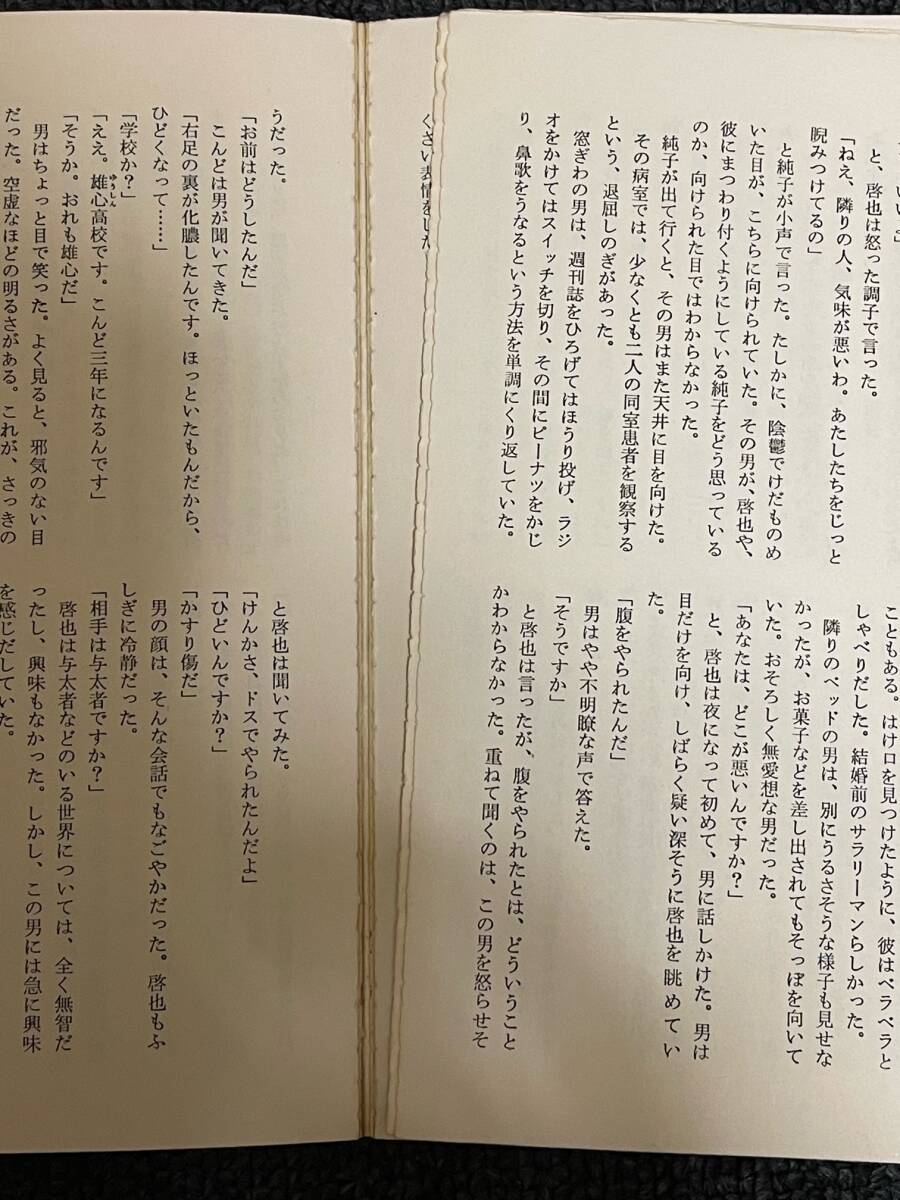 と、啓也は怒った調子で言った。
「ねえ、隣りの人、気味が悪いわ。あたしたちをじっと
睨みつけてるの」
と純子が小声で言った。たしかに、陰鬱でけだものめ
いた目が、こちらに向けられていた。その男が、啓也や、
彼にまつわり付くようにしている純子をどう思っている
のか、向けられた目ではわからなかった。
純子が出て行くと、その男はまた天井に目を向けた。
その病室では、少なくとも二人の同室患者を観察する
という、退屈しのぎがあった。
窓ぎわの男は、週刊誌をひろげてはほうり投げ、ラジ
オをかけてはスイッチを切り、その間にピーナツをかじ
り、鼻歌をうなるという方法を単調にくり返していた。
こともある。はけ口を見つけたように、彼はペラペラと
しゃべりだした。結婚前のサラリーマンらしかった。
隣りのベッドの男は、別にうるさそうな様子も見せな
かったが、お菓子などを差し出されてもそっぽを向いて
いた。おそろしく無愛想な男だった。
「あなたは、どこが悪いんですか？」
と、啓也は夜になって初めて、男に話しかけた。男は
目だけを向け、しばらく疑い深そうに啓也を眺めてい
た。
「腹をやられたんだ」
男はやや不明瞭な声で答えた。
「そうですか」
と啓也は言ったが、腹をやられたとは、どういうこと
かわからなかった。重ねて聞くのは、この男を怒らせそ
くさい表情をした
うだった。
「お前はどうしたんだ」
こんどは男が聞いてきた。
「右足の裏が化膿したんです。ほっといたもんだから、
ひどくなって……」
「学校か？」
「ええ。雄心高校です。こんど三年になるんです」
「そうか。おれも雄心だ」
男はちょっと目で笑った。よく見ると、邪気のない目
だった。空虚なほどの明るさがある。これが、さっきの
と啓也は聞いてみた。
「けんかさ、ドスでやられたんだよ」
「ひどいんですか？」
「かすり傷だ」
男の顔は、そんな会話でもなごやかだった。啓也もふ
しぎに冷静だった。
「相手は与太者ですか？」
啓也は与太者などのいる世界については、全く無智だ
ったし、興味もなかった。しかし、この男には急に興味
を感じだしていた。